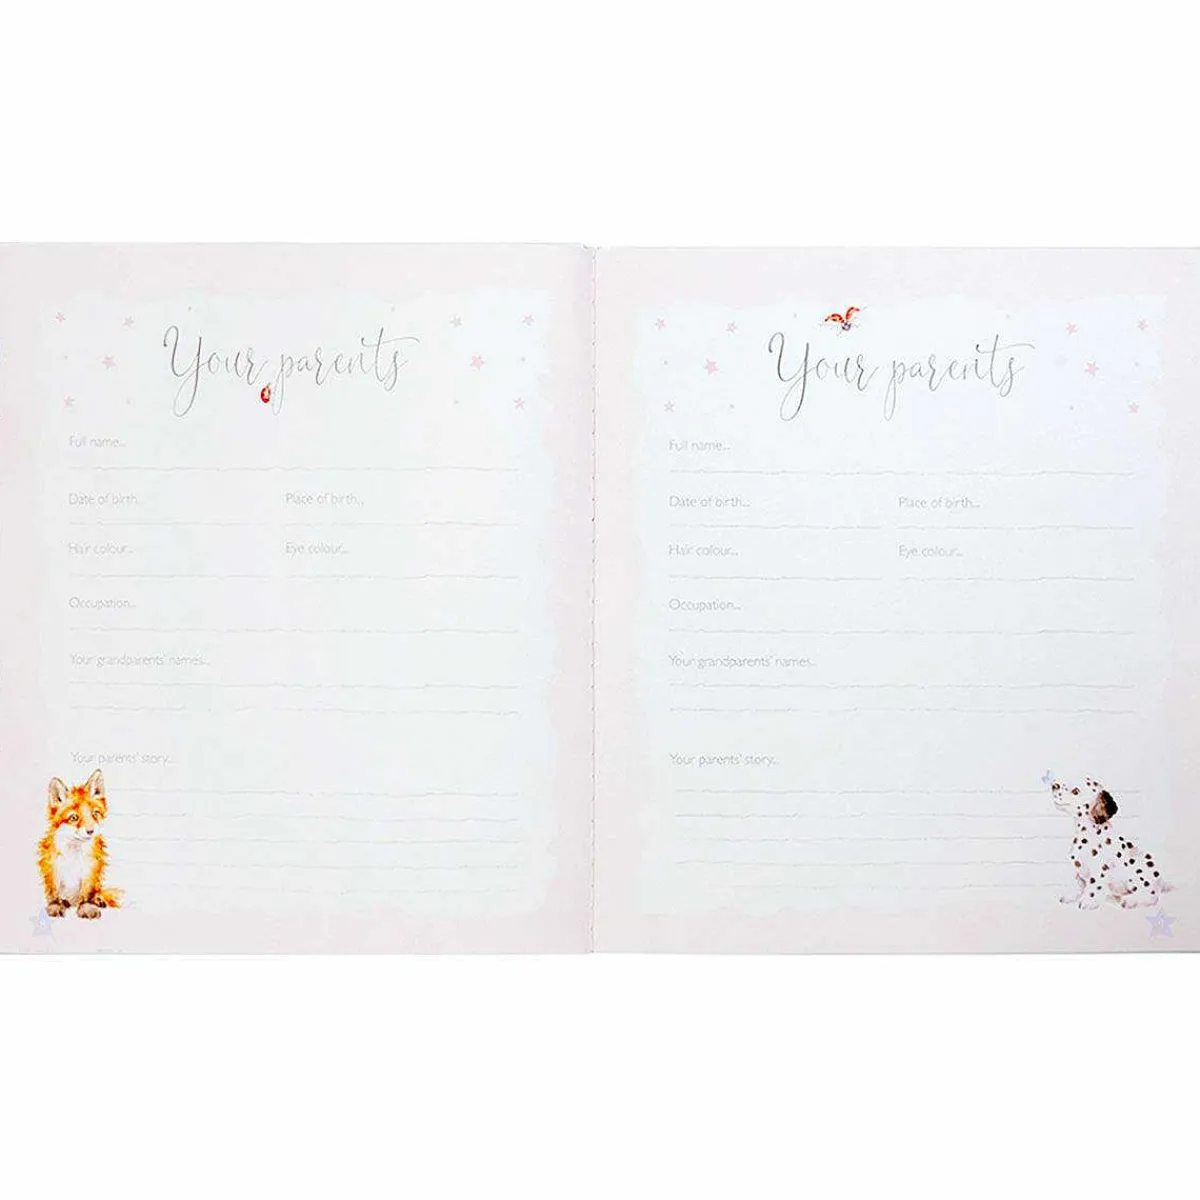 Your parents
Full name...
Date of birth...
Place of birth...
Hair colour...
Eye colour...
Occupation...
Your grandparents' names...
Your parents' story...
Your parents
Full name...
Date of birth...
Place of birth...
Hair colour...
Eye colour...
Occupation...
Your grandparents' names...
Your parents' story...